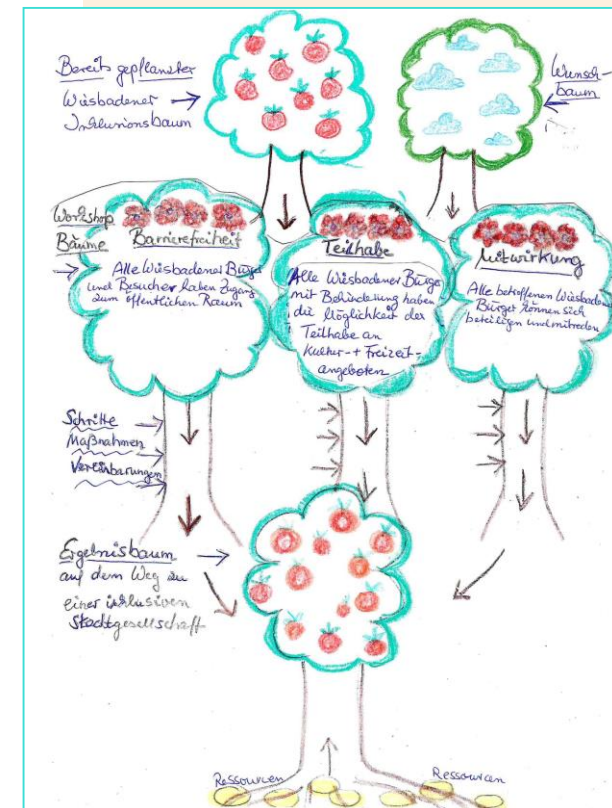 Bereits gepflanzter
Wiesbadener
Inklusionsbaum
Wunsch-
baum
Workshop
Bäume
Barrierefreiheit
Alle Wiesbadener Bürger
und Besucher haben Zugang
zum öffentlichen Raum
Teilhabe
Alle Wiesbadener Bürger
mit Behinderung haben
die Möglichkeit der
Teilhabe an
Kultur- + Freizeit-
angeboten
Mitwirkung
Alle betroffenen Wiesbad
Bürger können sich
beteiligen und mitreden
Schritte
Maßnahmen
Vereinbarungen
Ergebnisbaum
auf dem Weg zu
einer inklusiven
Stadtgesellschaft
Ressourcen
Ressourcen